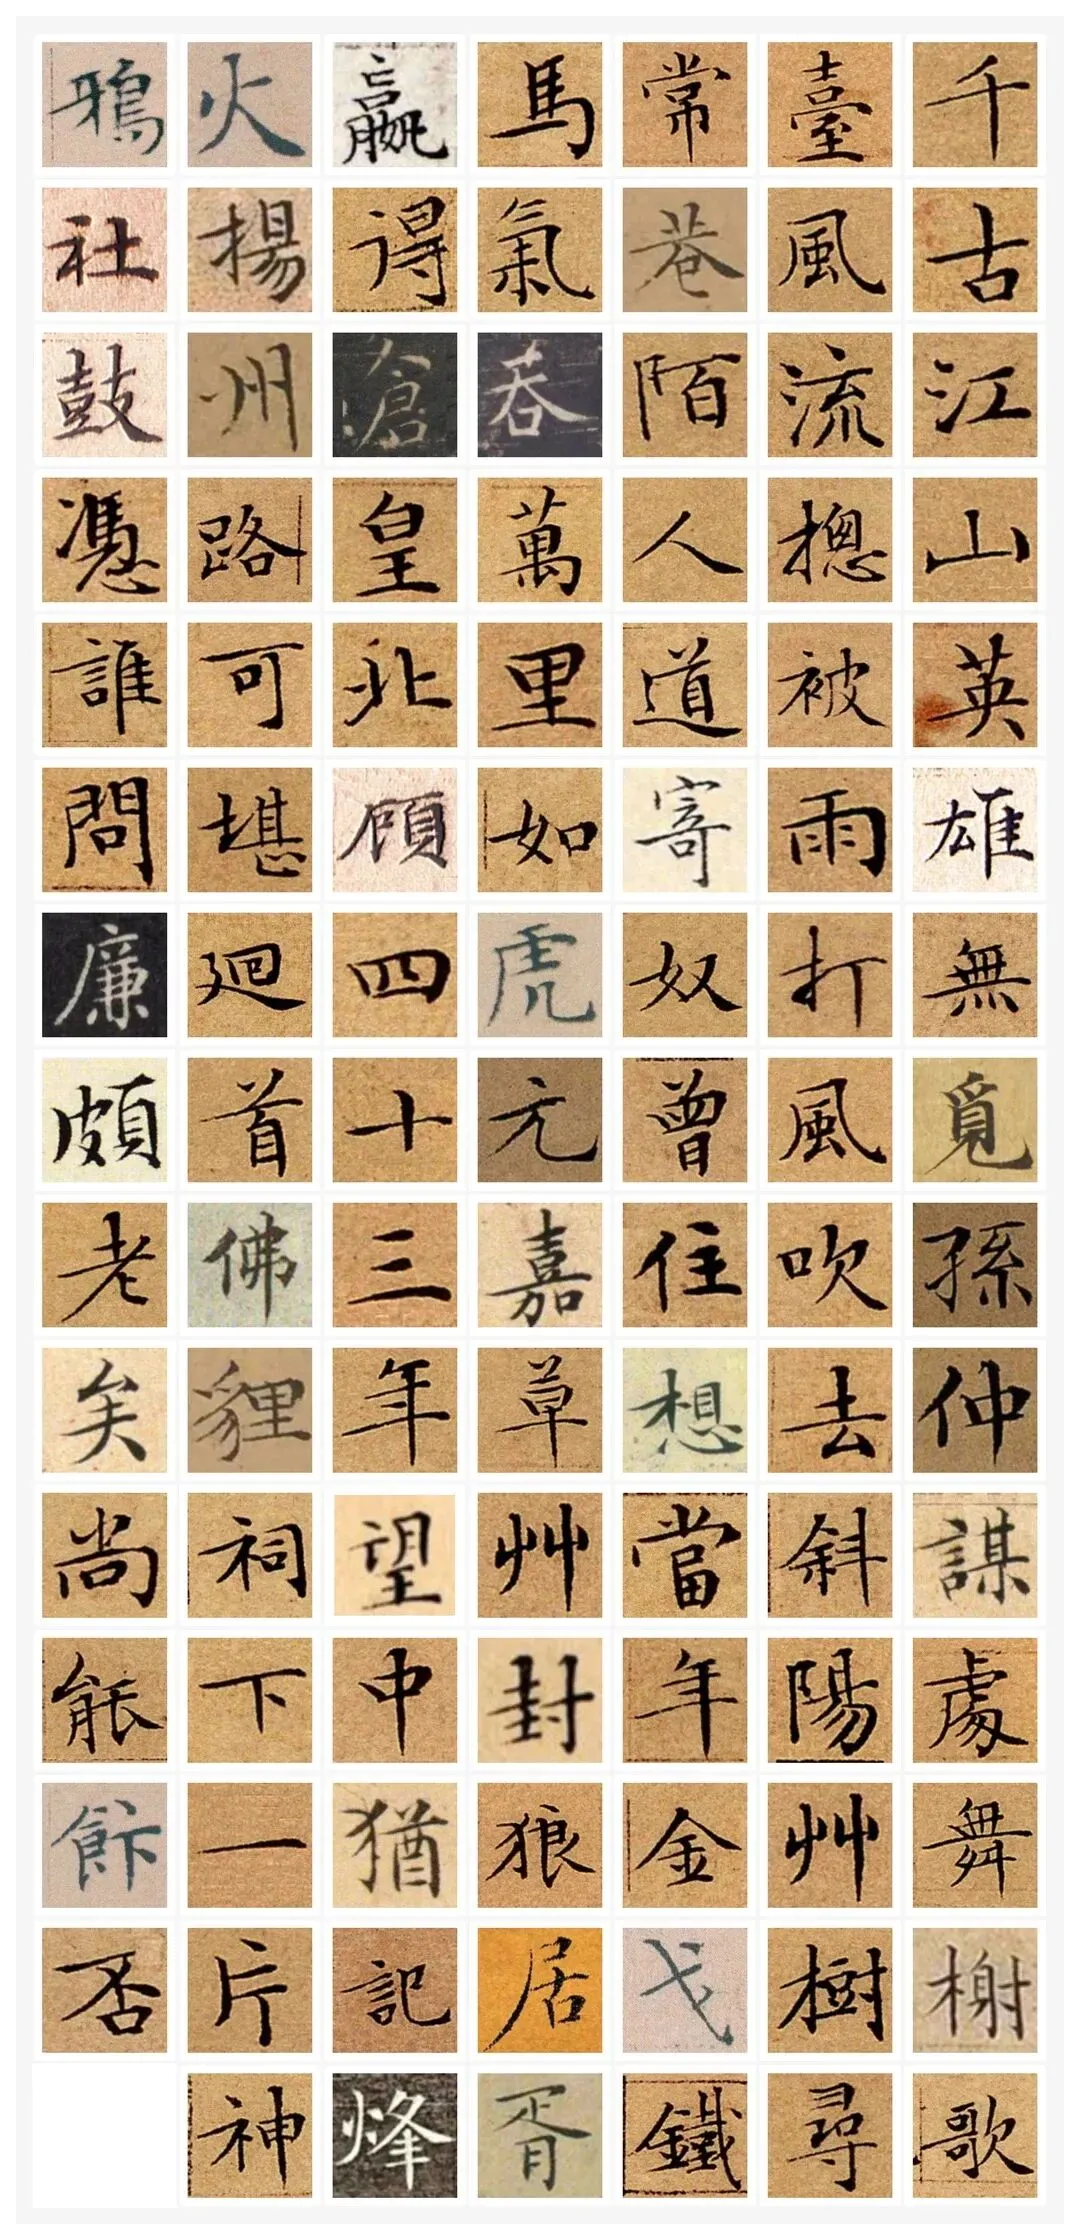 千古江山英雄無覓孫仲謀處舞榭歌
臺風流摠被雨打風吹去斜陽艸樹尋
常巷陌人道寄奴曾住想當年金戈鐵
馬氣吞萬里如虎元嘉草艸封狼居胥
贏得滄皇北顧四十三年望中猶記烽
火揚州路可堪迴首佛貍祠下一片神
鴉社鼓憑誰問廉頗老矣尚能飰否